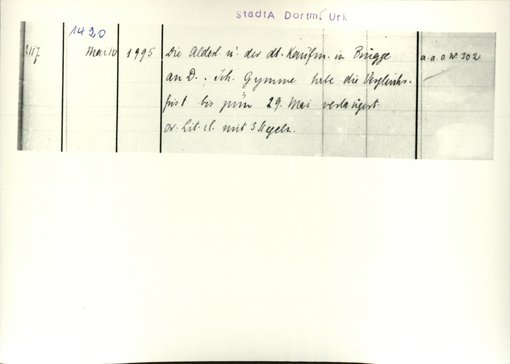 StadtA Dortm. Urk
1420
März 10 1995 Die Alderl. u. der dt. Kaufm. in Brügge a.a.O. N° 302
an D.: sich. Gymme habe die Vergleichs-
frist bis zum 29. Mai verlängert.
Or. Lit. cl. mit 3 Siegeln.